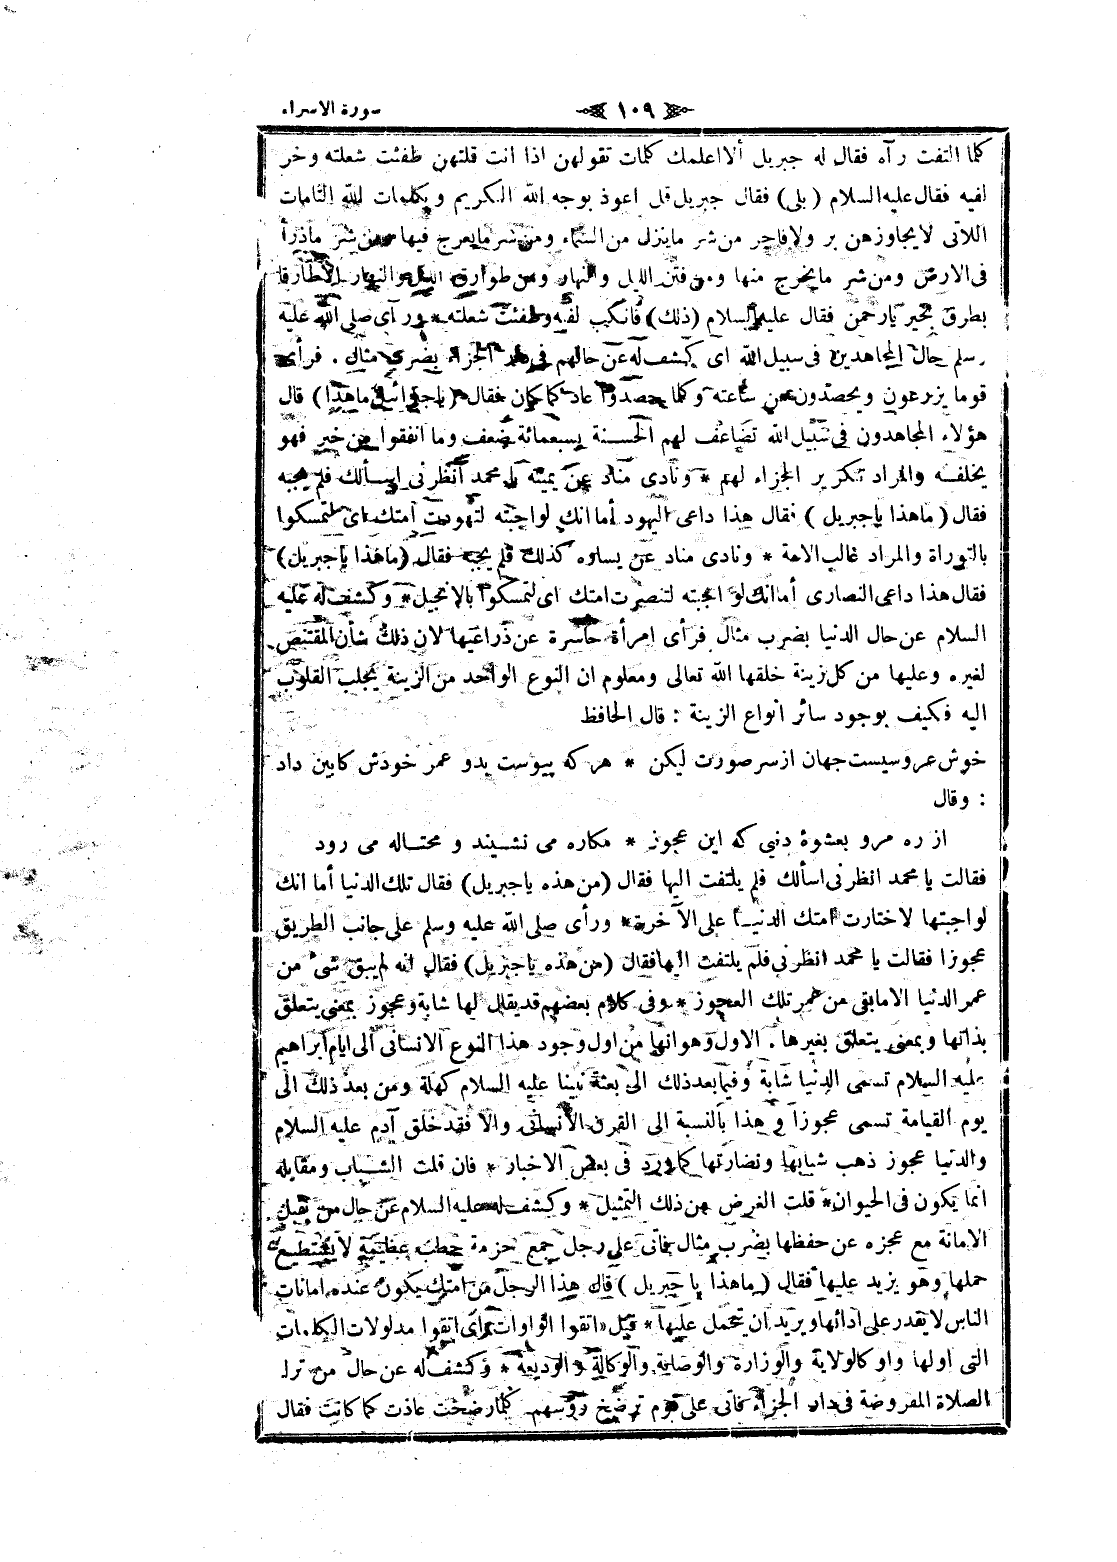 سورة الاسراء
١٠٩
كلما التفت رآه فقال له جبريل ألا اعلمك كلمات تقولهن اذا انت قلتهن طفئت شعلته وخر
لفيه فقال عليه السلام (بلى) فقال جبريل قل اعوذ بوجه الله الكريم وبكلمات الله التامات
اللاتى لا يجاوزهن بر ولا فاجر من شر ما ينزل من السماء ومن شر ما يعرج فيها ومن شر ماذرأ
فى الارض ومن شر ما يخرج منها ومن فتن الليل والنهار ومن طوارق الليل والنهار الا طارقا
يطرق بخير يا رحمن فقال عليه السلام (ذلك) فانكب لفيه وطفئت شعلته * ورآى صلى الله عليه
وسلم حال المجاهدين فى سبيل الله اى كشف له عن حالهم فى دار الجزاء بضرب مثال . فرأى
قوما يزرعون ويحصدون من ساعته وكلما حصدوا عاد كما كان فقال (يا جبرائيل ماهذا) قال
هؤلاء المجاهدون فى سبيل الله تضاعف لهم الحسنة بسبعمائة ضعف وما انفقوا من خير فهو
يخلفه والمراد تكرير الجزاء لهم * ونادى مناد عن يمينه يا محمد انظرنى اسألك فلم يجبه
فقال (ماهذا ياجبريل) فقال هذا داعى اليهود أما انك لواجبته لتهودت امتك اى لتمسكوا
بالتوراة والمراد غالب الامة * ونادى مناد عن يساره كذلك فلم يجبه فقال (ماهذا ياجبريل)
فقال هذا داعى النصارى أما انك لو اجبته لتنصرت امتك اى لتمسكوا بالانجيل * وكشف له عليه
السلام عن حال الدنيا بضرب مثال فرأى امرأة حاسرة عن ذراعيها لان ذلك شأن المقتنص
لغيره وعليها من كل زينة خلقها الله تعالى ومعلوم ان النوع الواحد من الزينة يجلب القلوب
اليه فكيف بوجود سائر انواع الزينة : قال الحافظ
خوش عروسيست جهان ازسر صورت ليكن * هركه پيوست بدو عمر خودش كابين داد
: وقال
از ره مرو بعشوۀ دنيى كه اين عجوز * مكاره مى نشيند و محتاله مى رود
فقالت يا محمد انظرنى اسألك فلم يلتفت اليها فقال (من هذه ياجبريل) فقال تلك الدنيا أما انك
لواجبتها لاختارت امتك الدنيا على الآخرة * ورأى صلى الله عليه وسلم على جانب الطريق
عجوزا فقالت يا محمد انظرنى فلم يلتفت اليها فقال (من هذه ياجبريل) فقال انه لم يبق شئ من
عمر الدنيا الا مابقى من عمر تلك العجوز * وفى كلام بعضهم قديقال لها شابة وعجوز بمعنى يتعلق
بذاتها وبمعنى يتعلق بغيرها . الاول وهو انها من اول وجود هذا النوع الانسانى الى ايام ابراهيم
عليه السلام تسمى الدنيا شابة وفيما بعد ذلك الى بعثة نبينا عليه السلام كهلة ومن بعد ذلك الى
يوم القيامة تسمى عجوزا وهذا بالنسبة الى القرن الانسانى والا فقد خلق آدم عليه السلام
والدنيا عجوز ذهب شبابها ونضارتها كما ورد فى بعض الاخبار * فان قلت الشباب ومقابله
انما يكون فى الحيوان * قلت الغرض من ذلك التمثيل * وكشف له عليه السلام عن حال من يقبل
الامانة مع عجزه عن حفظها بضرب مثال فاتى على رجل جمع حزمة حطب عظيمة لا يستطيع
حملها وهو يزيد عليها فقال (ماهذا يا جبريل) قال هذا الرجل من امتك يكون عنده امانات
الناس لا يقدر على ادائها ويريد ان يتحمل عليها * قيل «اتقوا الواوات» اى اتقوا مدلولات الكلمات
التى اولها واو كالولاية والوزارة والوصاية والوكالة والوديعة * وكشف له عن حال من ترك
الصلاة المفروضة فى دار الجزاء فاتى على قوم ترضخ رؤسهم كلما رضخت عادت كما كانت فقال